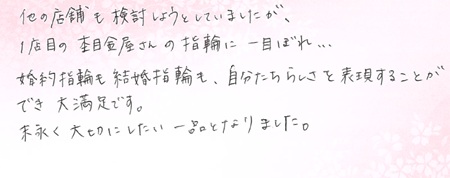 他の店舗も検討しようとしていましたが、
1店目の杢目金屋さんの指輪に一目ぼれ…
婚約指輪も結婚指輪も、自分たちらしさを表現することが
でき大満足です。
末永く大切にしたい一品となりました。